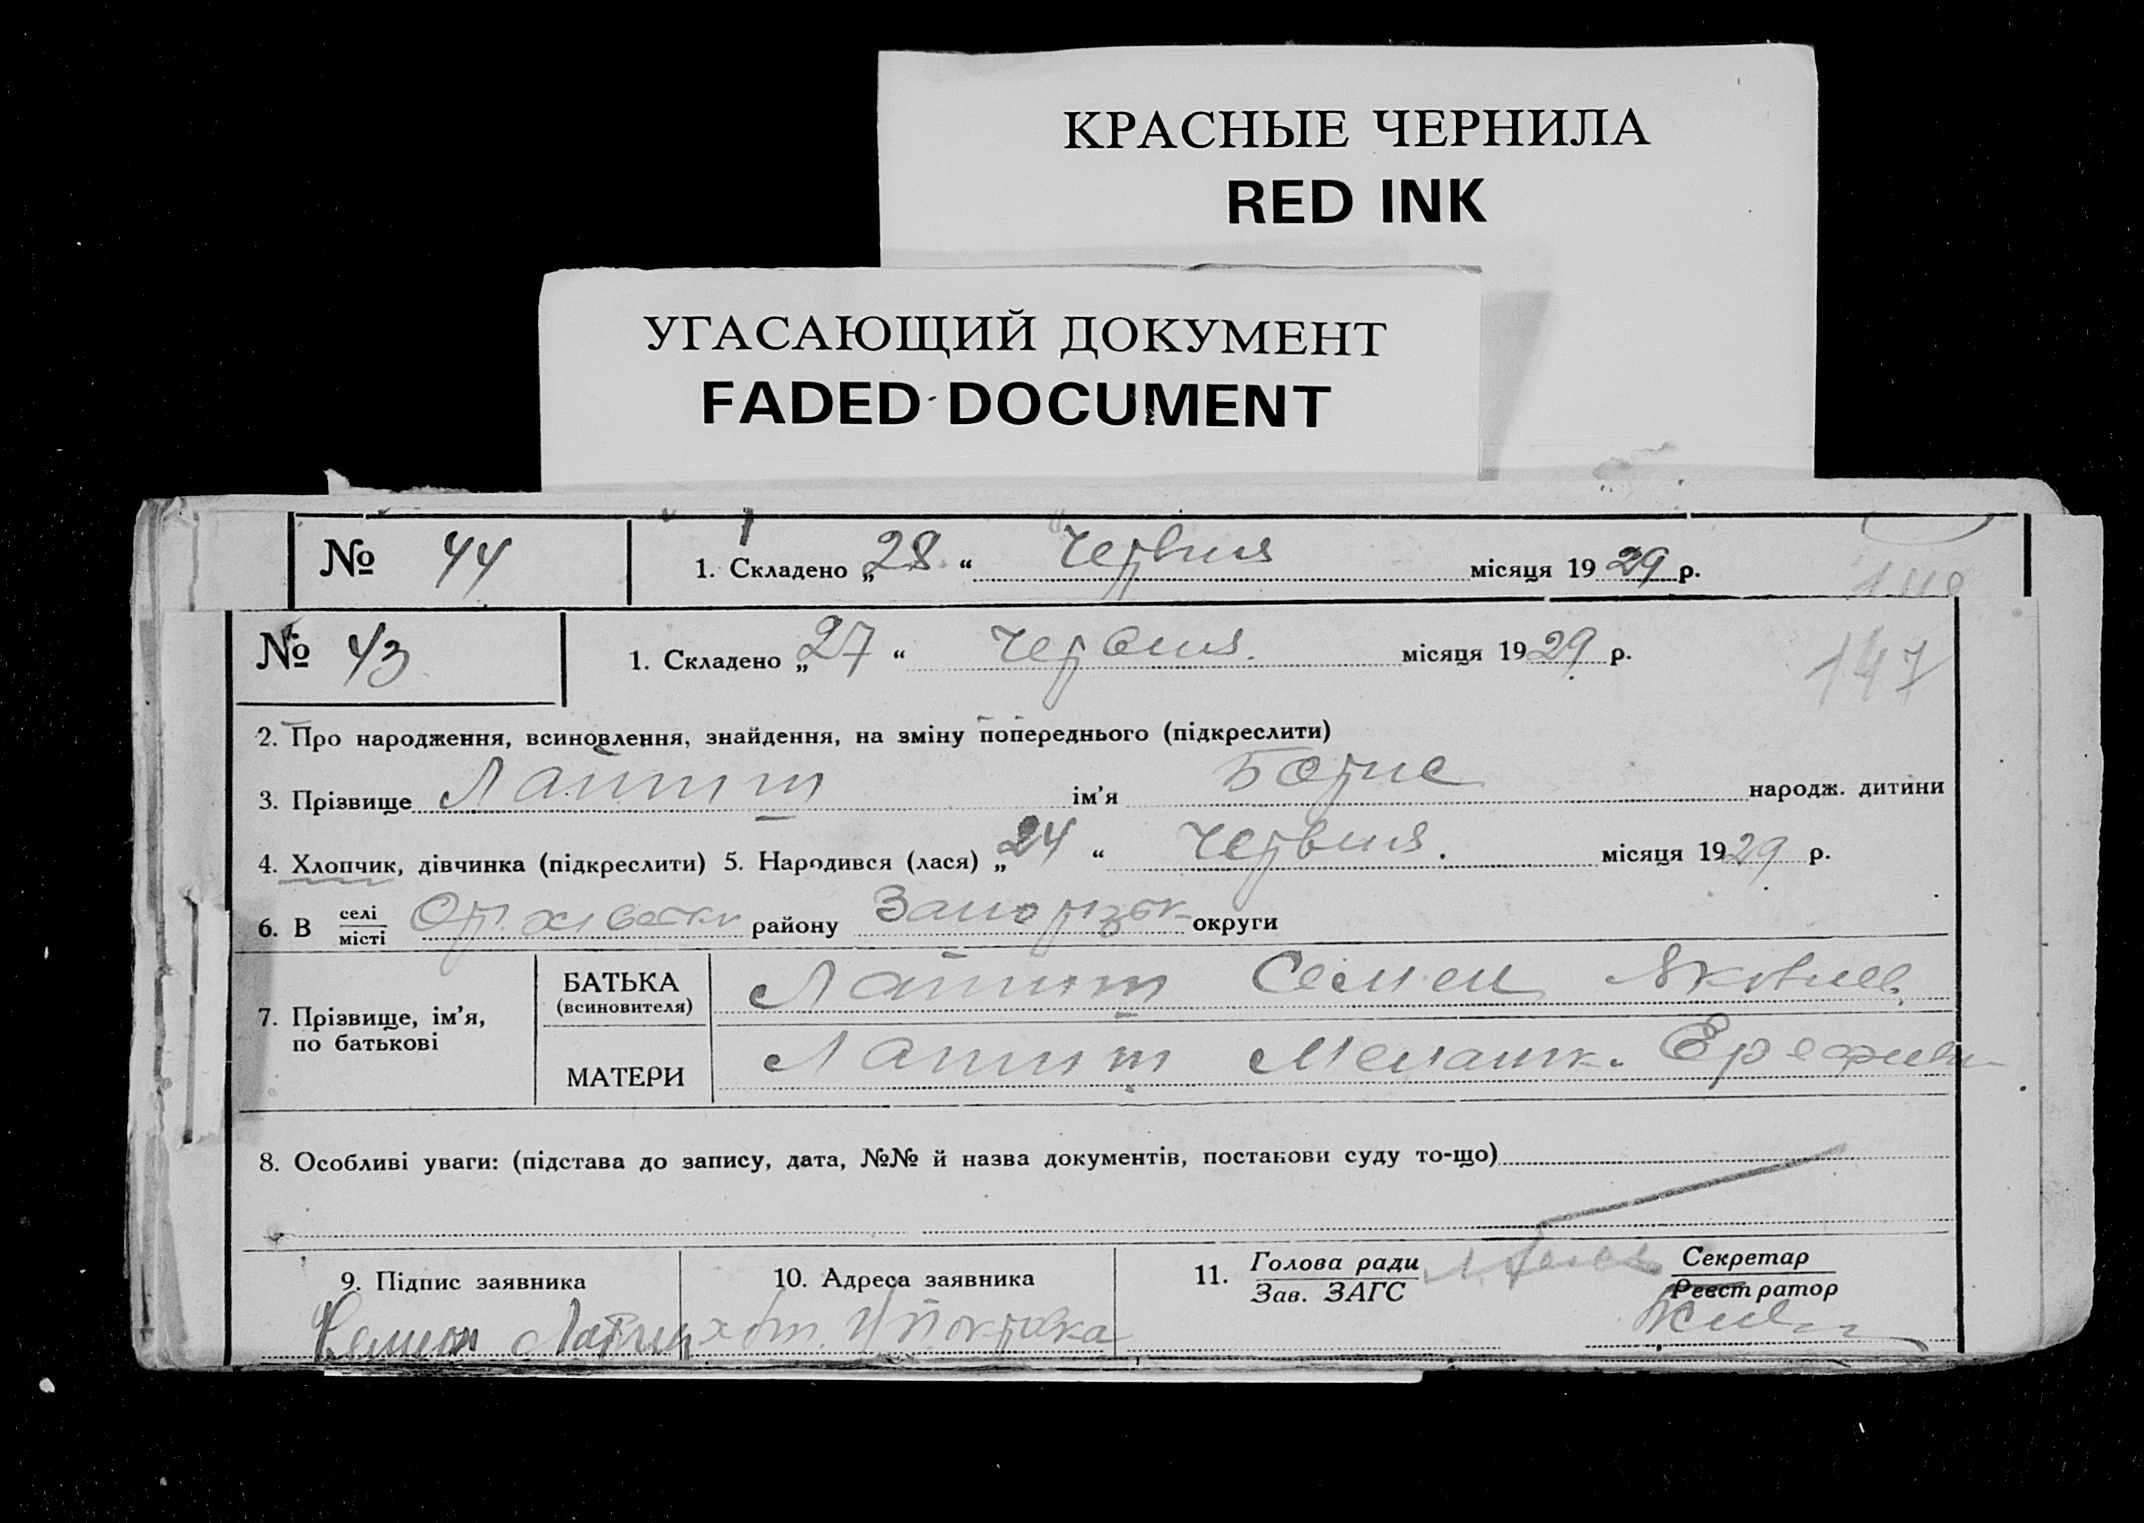 КРАСНЫЕ ЧЕРНИЛА
RED INK
УГАСАЮЩИЙ ДОКУМЕНТ
FADED DOCUMENT
№ 44 1. Складено „28“ червня місяця 1929 р.
№ 43 1. Складено „27“ червня місяця 1929 р.
147
2. Про народження, всиновлення, знайдення, на зміну попереднього (підкреслити)
3. Прізвище ім'я Борис народж. дитини
4. Хлопчик, дівчинка (підкреслити) 5. Народився (лася) „24“ червня. місяця 1929 р.
6. В селі/місті району Запорізьк. округи
7. Прізвище, ім'я, по батькові
БАТЬКА (всиновителя) Семен Яковлев.
МАТЕРИ
8. Особливі уваги: (підстава до запису, дата, №№ й назва документів, постанови суду то-що)
9. Підпис заявника 10. Адреса заявника 11. Голова ради/Зав. ЗАГС Секретар/Реєстратор